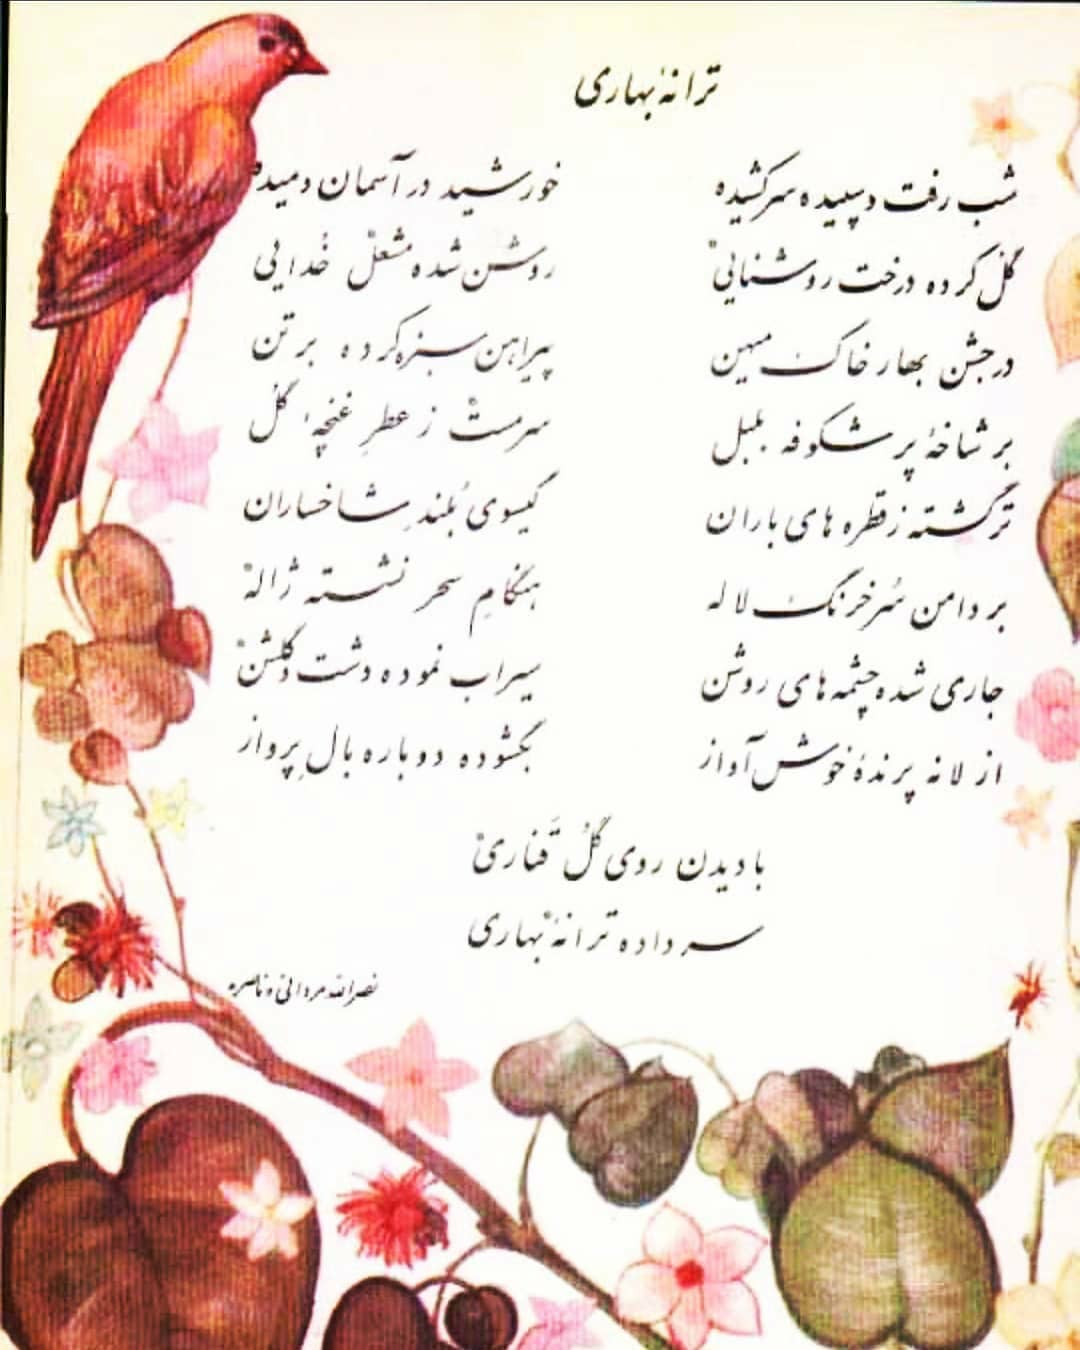 ترانهٔ بهاری
شب رفت و سپیده سرکشیده خورشید در آسمان دمیده
گل کرده درخت روشنایی روشن شده مشعل خُدایی
در جشن بهار خاک میهن پیراهن سبزه کرده بر تن
بر شاخهٔ پر شکوفه بلبل سرمست ز عطرِ غنچهٔ گل
تر گشته ز قطره های باران گیسوی بُلندِ شاخساران
بر دامن سُرخرنگ لاله هنگامِ سحر نشسته ژاله
جاری شده چشمه های روشن سیراب نموده دشت و گلشن
از لانه پرندهٔ خوش آواز بگشوده دوباره بالِ پرواز
با دیدن روی گل قَناری
سر داده ترانهٔ بهاری
نصرالله مردانی ناصر